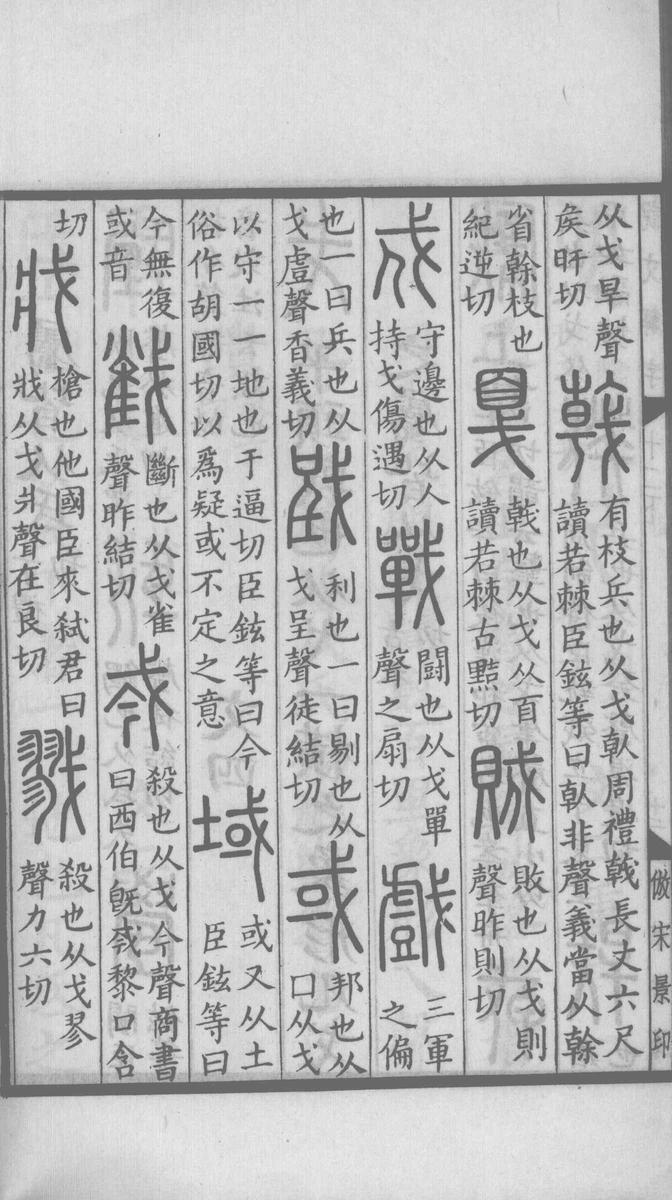 从戈旱聲
矦旰切
𢧢
有枝兵也从戈倝周禮戟長丈六尺
讀若棘臣鉉等曰倝非聲義當从榦
省榦枝也
紀逆切
戛
戟也从戈从百
讀若棘古黠切
賊
敗也从戈則
聲昨則切
戍
守邊也从人
持戈傷遇切
戰
鬭也从戈單
聲之扇切
戲
三軍
之偏
也一曰兵也从
戈䖒聲香義切
戜
利也一曰剔也从
戈呈聲徒結切
或
邦也从
口从戈
以守一一地也于逼切臣鉉等曰今
俗作胡國切以爲疑或不定之意
域
或又从土
臣鉉等曰
今無復
或音
𢧵
斷也从戈雀
聲昨結切
𢦟
殺也从戈今聲商書
曰西伯旣𢦟黎口含
切
戕
槍也他國臣來弑君曰
戕从戈爿聲在良切
戮
殺也从戈翏
聲力六切
倣宋景印